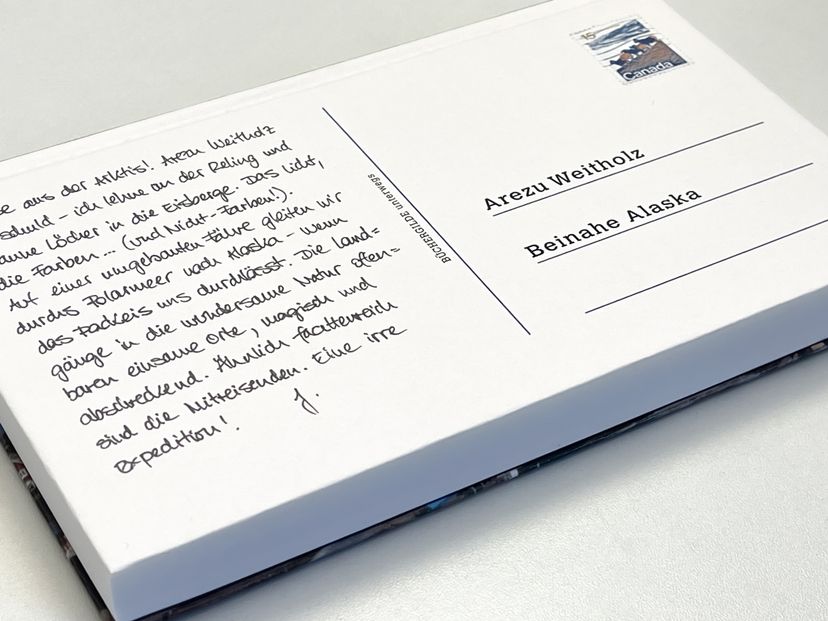 se aus der Arktis! Arezu Weitholz
schuld - ich lehne an der Reling und
Löcher in die Eisberge. Das Licht,
die Farben ... (und Nicht-Farben!).
Auf einer umgebauten Fähre gleiten wir
durchs Polarmeer nach Alaska - wenn
das Packeis uns durchlässt. Die Land=
gänge in die wundersame Natur offen=
baren einsame Orte, magisch und
abschreckend. Ähnlich facettenreich
sind die Mitreisenden. Eine irre
Expedition! J.
BÜCHERGILDE unterwegs
15
Canada
Arezu Weitholz
Beinahe Alaska